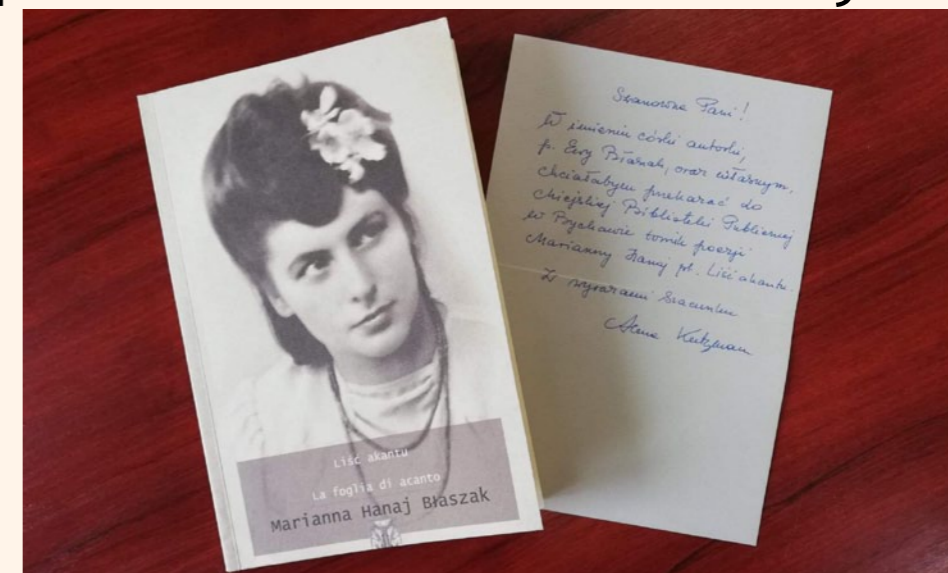 Liść akantu
La foglia di acanto
Marianna Hanaj Błaszak
Szanowna Pani!
W imieniu córki autorki,
p. Ewy Błaszak, oraz własnym,
chciałabym przekazać do
Miejskiej Biblioteki Publicznej
w Bychawie tomik poezji
Marianny Hanaj pt. Liść akantu.
Z wyrazami szacunku